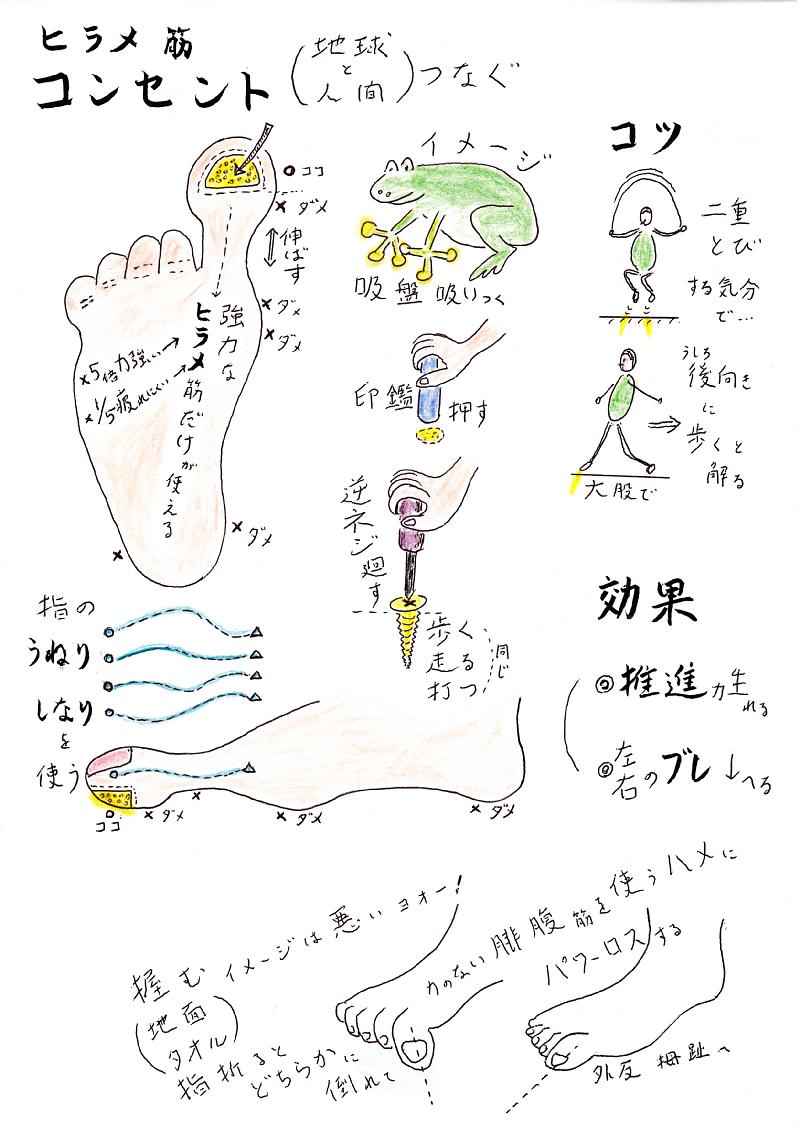 ヒラメ筋
コンセント
(地球と人間)つなぐ
ココ
ダメ
伸ばす
ダメ
ダメ
強力な
ヒラメ筋だけが使える
×5倍力強い→
×1/5疲れにくい→
ダメ
イメージ
吸盤 吸いつく
印鑑 押す
逆ネジ廻す
歩く
走る
打つ
同じ
コツ
二重
とび
する気分
で…
うしろ
後向き
に
歩くと
解る
大股で
効果
◎推進力生れる
◎左右のブレ↓へる
指の
うねり
しなり
を
使う
ココ
ダメ
ダメ
ダメ
握むイメージは悪いヨォー!
(地面
タオル)
指折ると
どちらかに
倒れて
力のない腓腹筋を使うハメに
パワーロスする
外反拇趾へ